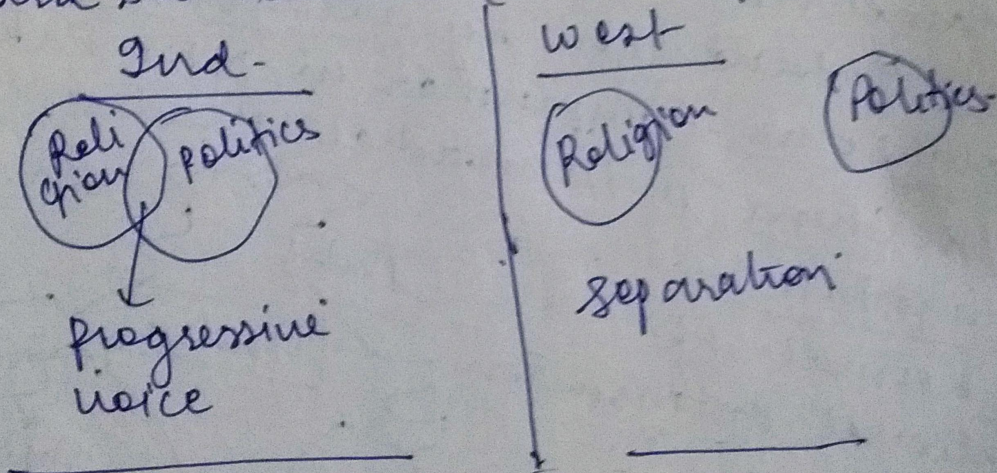 Ind.
Reli
gion
Politics
Progressive
voice
West
Religion
Politics
Separation